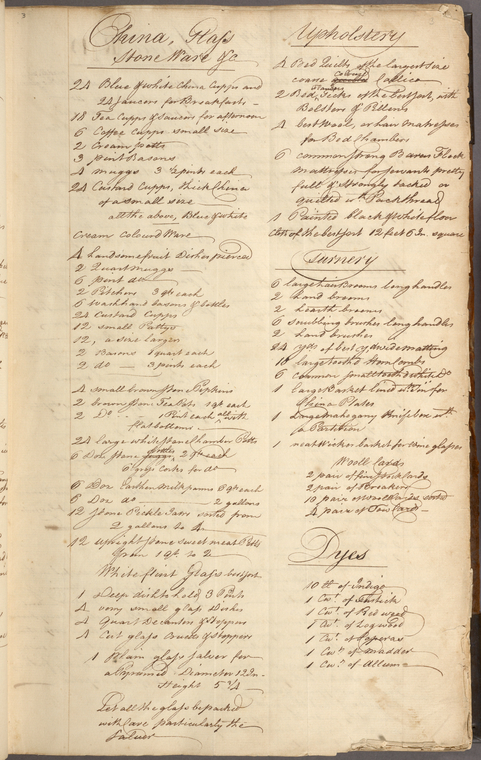 3
China, Glass
Stone Ware &c
24 Blue & white China Cupps and
24 Saucers for Breakfasts
18 Tea Cupps & Saucers for afternoon
6 Coffee Cupps small size
2 Cream potts
3 pint Basons
4 muggs 3 ½ pints each
24 Custard Cupps, thick China
of a small size
all the above, Blue & white
Cream Colourd Ware
4 handsome fruit Dishes pierced
2 Quart muggs
6 pint do
2 Pitchers 3 qts each
6 washhand basons & bottles
24 Custard Cupps
12 small Pattys
12, a size larger
2 Basons 1 quart each
2 do — 3 pints each
4 small brown stone Pipkins
2 brown stone Tea Pots 1 qt each
2 Do 1 Pint each all with
flat bottoms
24 large white stone Chamber Potts
6 Do Stone bottles, 2 qts each
6 large Corks for do
6 Do Earthen Milk panns 6 qts each
8 Do do — 2 gallons
12 stone Pickle Jars sorted from
2 gallons to 4
12 upright stone sweet meat Potts
from 1 qt to 2
White flint Glass best sort
1 Deep dish to hold 3 Pints
4 very small glass Dishes
4 Quart Decanters & Stoppers
4 Cut glass Cruets & Stoppers
1 Plain glass Salver for
a Pyramid Diameter 12 In
Height 5¾
Let all the glass be packed
with Care particularly the
Salver
Upholstery
4 Bed Quilts, of the largest size
coarse Colourd Callico
2 Bed Ticks of the best sort, with
Bolsters & Pillows
4 best Wool, or hair Matrasses
for Bed Chambers
6 common strong Flock
Mattrasses for servants pretty
full & strongly tacked or
quilted wth Packthread
1 Painted black & white floor
Cloth of the best sort 12 feet 6 In square
Turnery
6 large hair Brooms long handles
2 hand brooms
2 hearth brooms
6 scrubbing brushes long handles
6 hand brushes
24 yds of best yd wide matting
10 large tooth'd Horn Combs
6 common small tooth white Do
1 large Basket lined wth Tin for
China Plates
1 Large Mahogany Knife box with
a Partition
1 neat Wicker basket for Wine glasses
Wooll Cards
2 pair of fine stock Cards
2 pair of Breakers
10 pair of Wool Cards sorted
4 pair of Tow Cards
Dyes
10 lb of Indigo
1 Cwt of Fustick
1 Cwt of Red wood
1 Cwt of Logwood
1 Cwt of Coperas
1 Cwt of Madder
1 Cwt of Allum